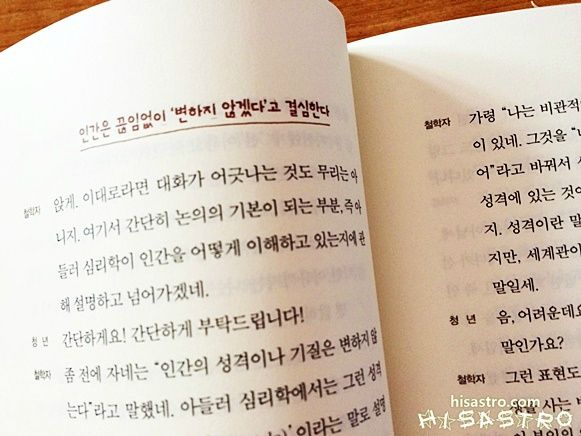 인간은 끊임없이 '변하지 않겠다'고 결심한다
철학자 앉게. 이대로라면 대화가 어긋나는 것도 무리는 아
니지. 여기서 간단히 논의의 기본이 되는 부분, 즉 아
들러 심리학이 인간을 어떻게 이해하고 있는지에 관
해 설명하고 넘어가겠네.
청 년 간단하게요! 간단하게 부탁드립니다!
철학자 좀 전에 자네는 "인간의 성격이나 기질은 변하지 않
는다"라고 말했네. 아들러 심리학에서는 그런 성격
이라는 말로 설명
철학자 가령 "나는 비관적
이 있네. 그것을 "
어"라고 바꿔서
성격에 있는 것이
지. 성격이란 말
지만, 세계관이
말일세.
청 년 음, 어려운데요
말인가요?
철학자 그런 표현도
사는 버
hisastro.com
HiSASTRO